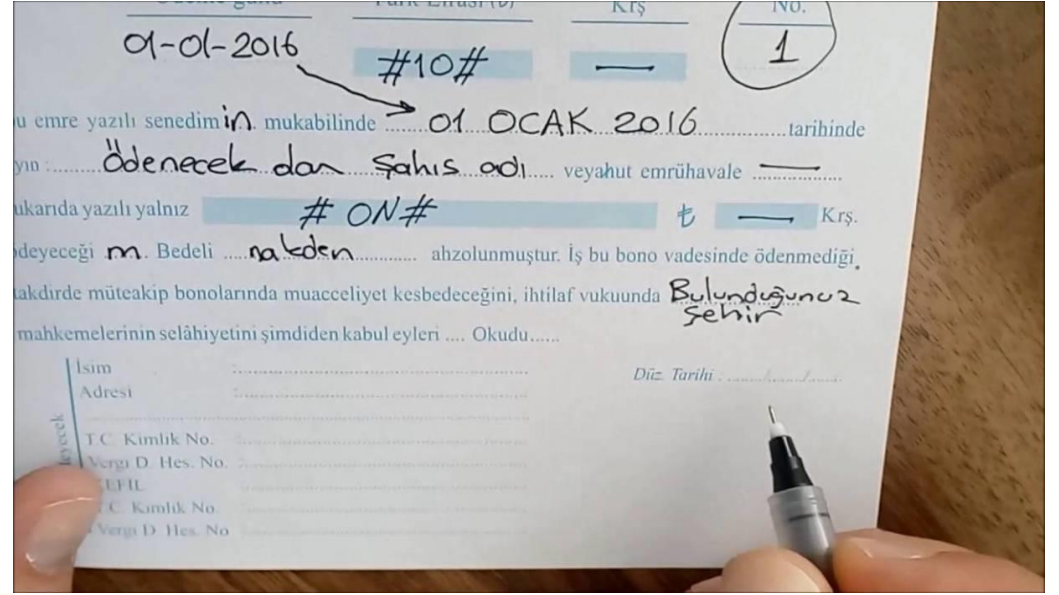 Ödeme günü Türk Lirası (₺) Krş No.
01-01-2016 #10# — 1
u emre yazılı senedim in. mukabilinde ........ 01 OCAK 2016 ............... tarihinde
yın :......... Ödenecek dan Şahıs adı ..... veyahut emrühavale —
ukarıda yazılı yalnız # ON# ₺ — Krş.
deyeceği m. Bedeli ..... nakden ............ ahzolunmuştur. İş bu bono vadesinde ödenmediği
takdirde müteakip bonolarında muacceliyet kesbedeceğini, ihtilaf vukuunda Bulunduğunuz
Şehir
mahkemelerinin selâhiyetini şimdiden kabul eyleri .... Okudu......
İsim :
Düz. Tarihi :
Adresi :
eyecek
T.C. Kimlik No. :
Vergi D. Hes. No. :
KEFİL
T.C. Kimlik No.
Vergi D. Hes. No